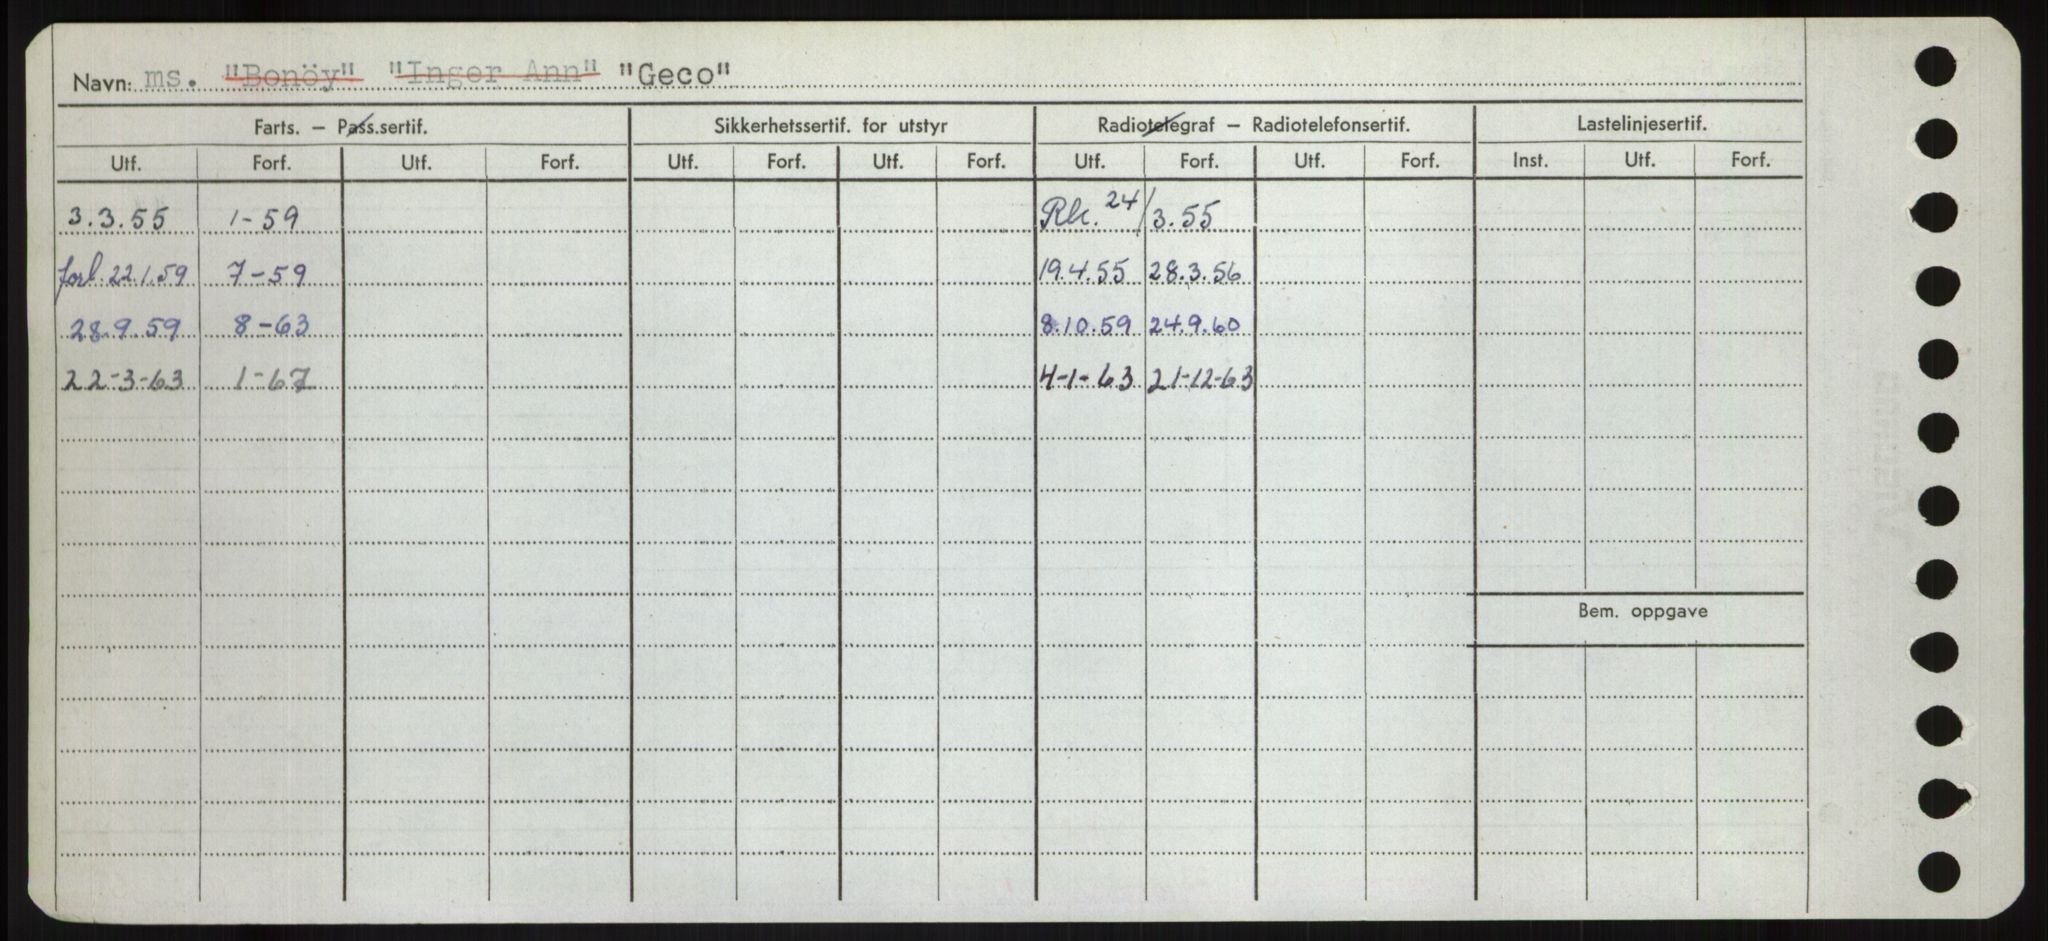 Navn: ms. "Bonöy" "Inger Ann" "Geco"
Farts. – Pass.sertif. Sikkerhetssertif. for utstyr Radiotelegraf – Radiotelefonsertif. Lastelinjesertif.
Utf. Forf. Utf. Forf. Utf. Forf. Utf. Forf. Utf. Forf. Utf. Forf. Inst. Utf. Forf.
3.3.55 1-59 Rk. 24/3.55
forl. 22.1.59 7-59 19.4.55 28.3.56
28.9.59 8-63 8.10.59 24.9.60
22-3-63 1-67 4-1-63 21-12-63
Bem. oppgave